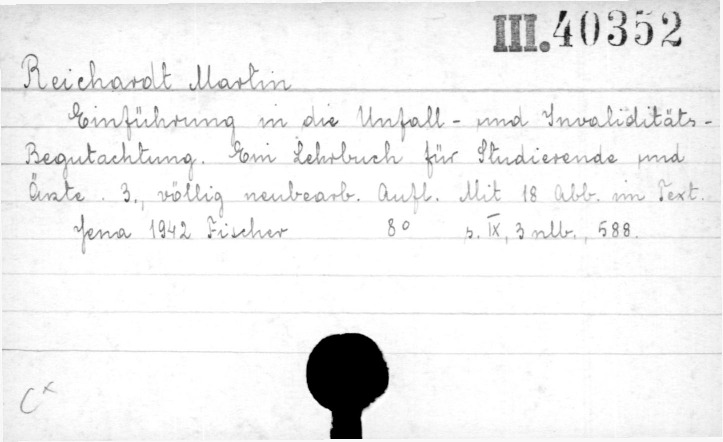 III.40352
Reichardt Martin
Einführung in die Unfall- und Invaliditäts-
Begutachtung. Ein Lehrbuch für Studierende und
Ärzte. 3., völlig neubearb. Aufl. Mit 18 Abb. im Text.
Jena 1942 Fischer 8° s. IX, 3 nlb., 588.
C x